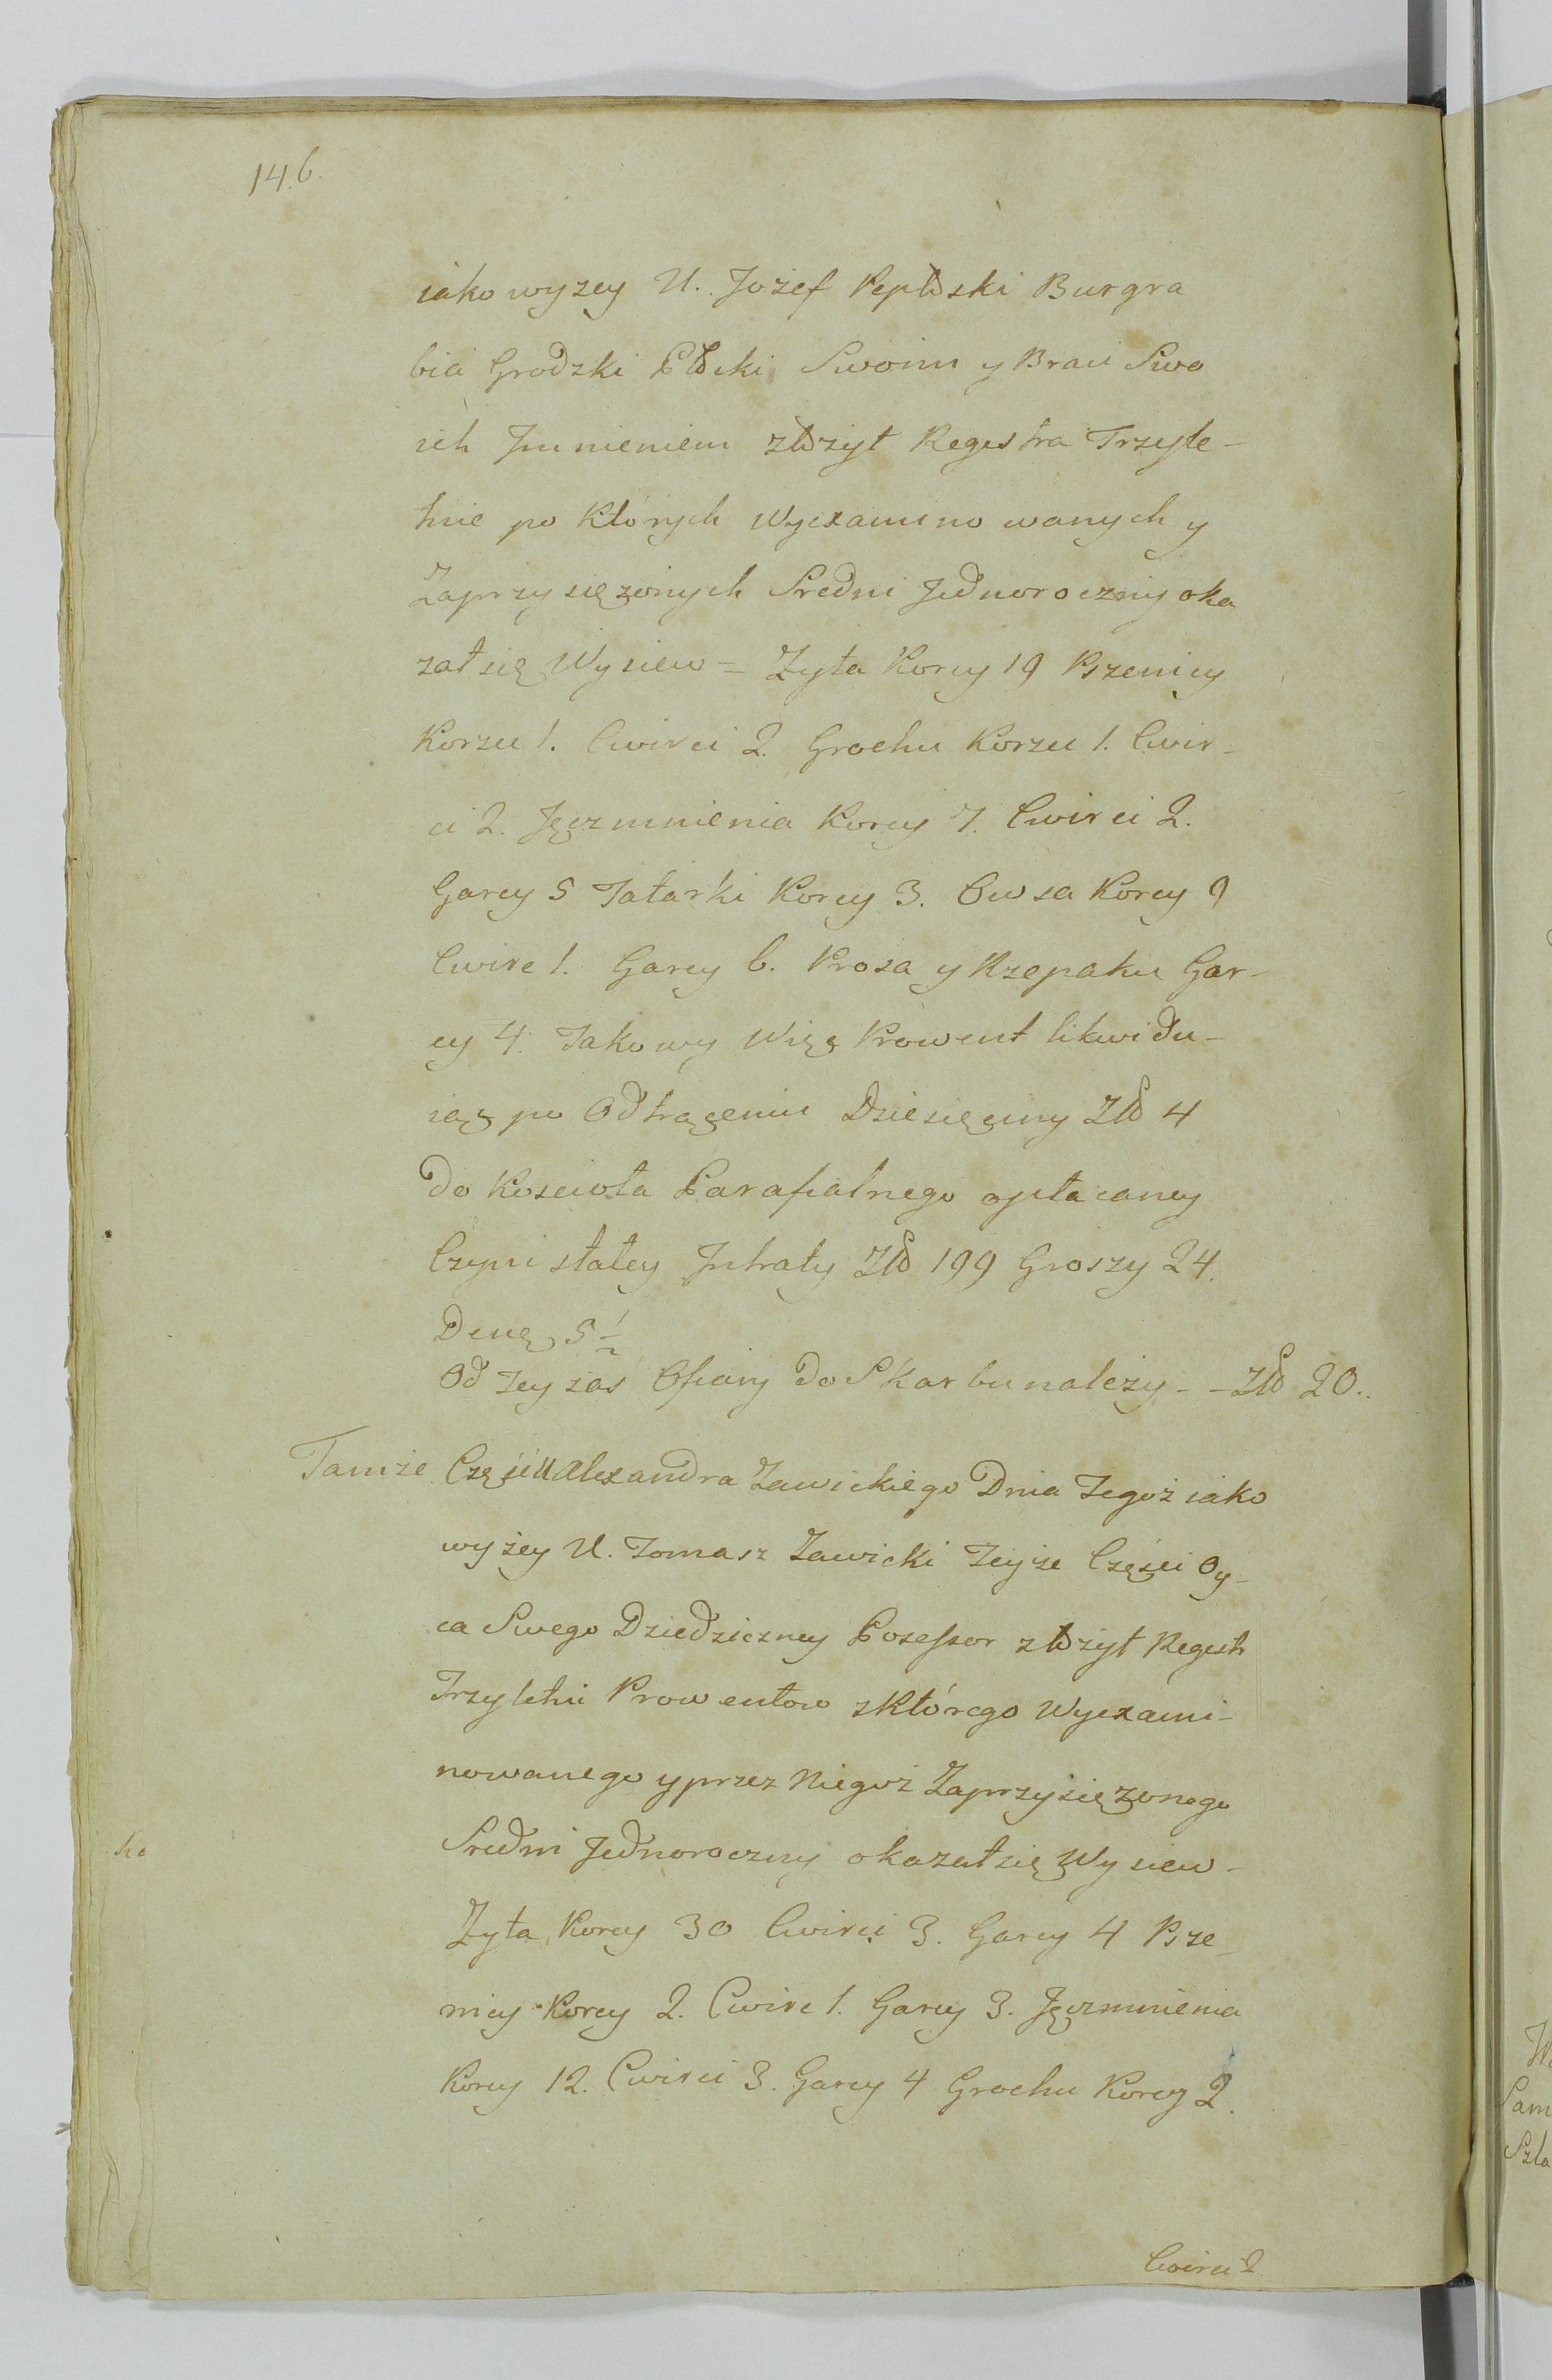 146.
iako wyzey U. Jozef Pepłoski Burgra
bia Grodzki Płocki Swoim y Braci Swo
ich Jmnieniem złożył Regestra Trzyle-
tnie po Których Wyexaminowanych y
Zaprzysięzonych Sredni Jednoroczny oka
zał się Wysiew = Zyta Korcy 19 Pszenicy
Korzec 1. Cwirci 2. Grochu Korzec 1. Cwir-
ci 2. Jęczmnienia Korcy 7. Cwirci 2.
Garcy 5 Tatarki Korcy 3. Owsa Korcy 9
Cwirc 1. Garcy 6. Prosa y Rzepaku Gar-
cy 4. Takowy Więc Prowent likwidu-
iąc po Odtrąceniu Dziesięciny Zło 4
Do Koscioła Parafialnego opłacaney
Czyni stałey Jntraty Zło 199 Groszy 24.
Deną 5 1/2
Od Tey zas Ofiary do Skarbu należy - - Zło 20..
Tamże Części U Alexandra Zawickiego Dnia Tegoż iako
wyżey U. Tomasz Zawicki Teyże Części Oy-
ca Swego Dziedziczney Posessor złożył Regestr
Trzyletni Prowentow z Którego Wyexami-
nowanego y przez Niegoż Zaprzysięzonego
Sredni Jednoroczny okazał się Wysiew -
Zyta Korcy 30 Cwirci 3. Garcy 4 Psze-
nicy Korcy 2. Cwirc 1. Garcy 3. Jęczmnienia
Korcy 12. Cwirci 3. Garcy 4 Grochu Korcy 2.
Cwirci 2